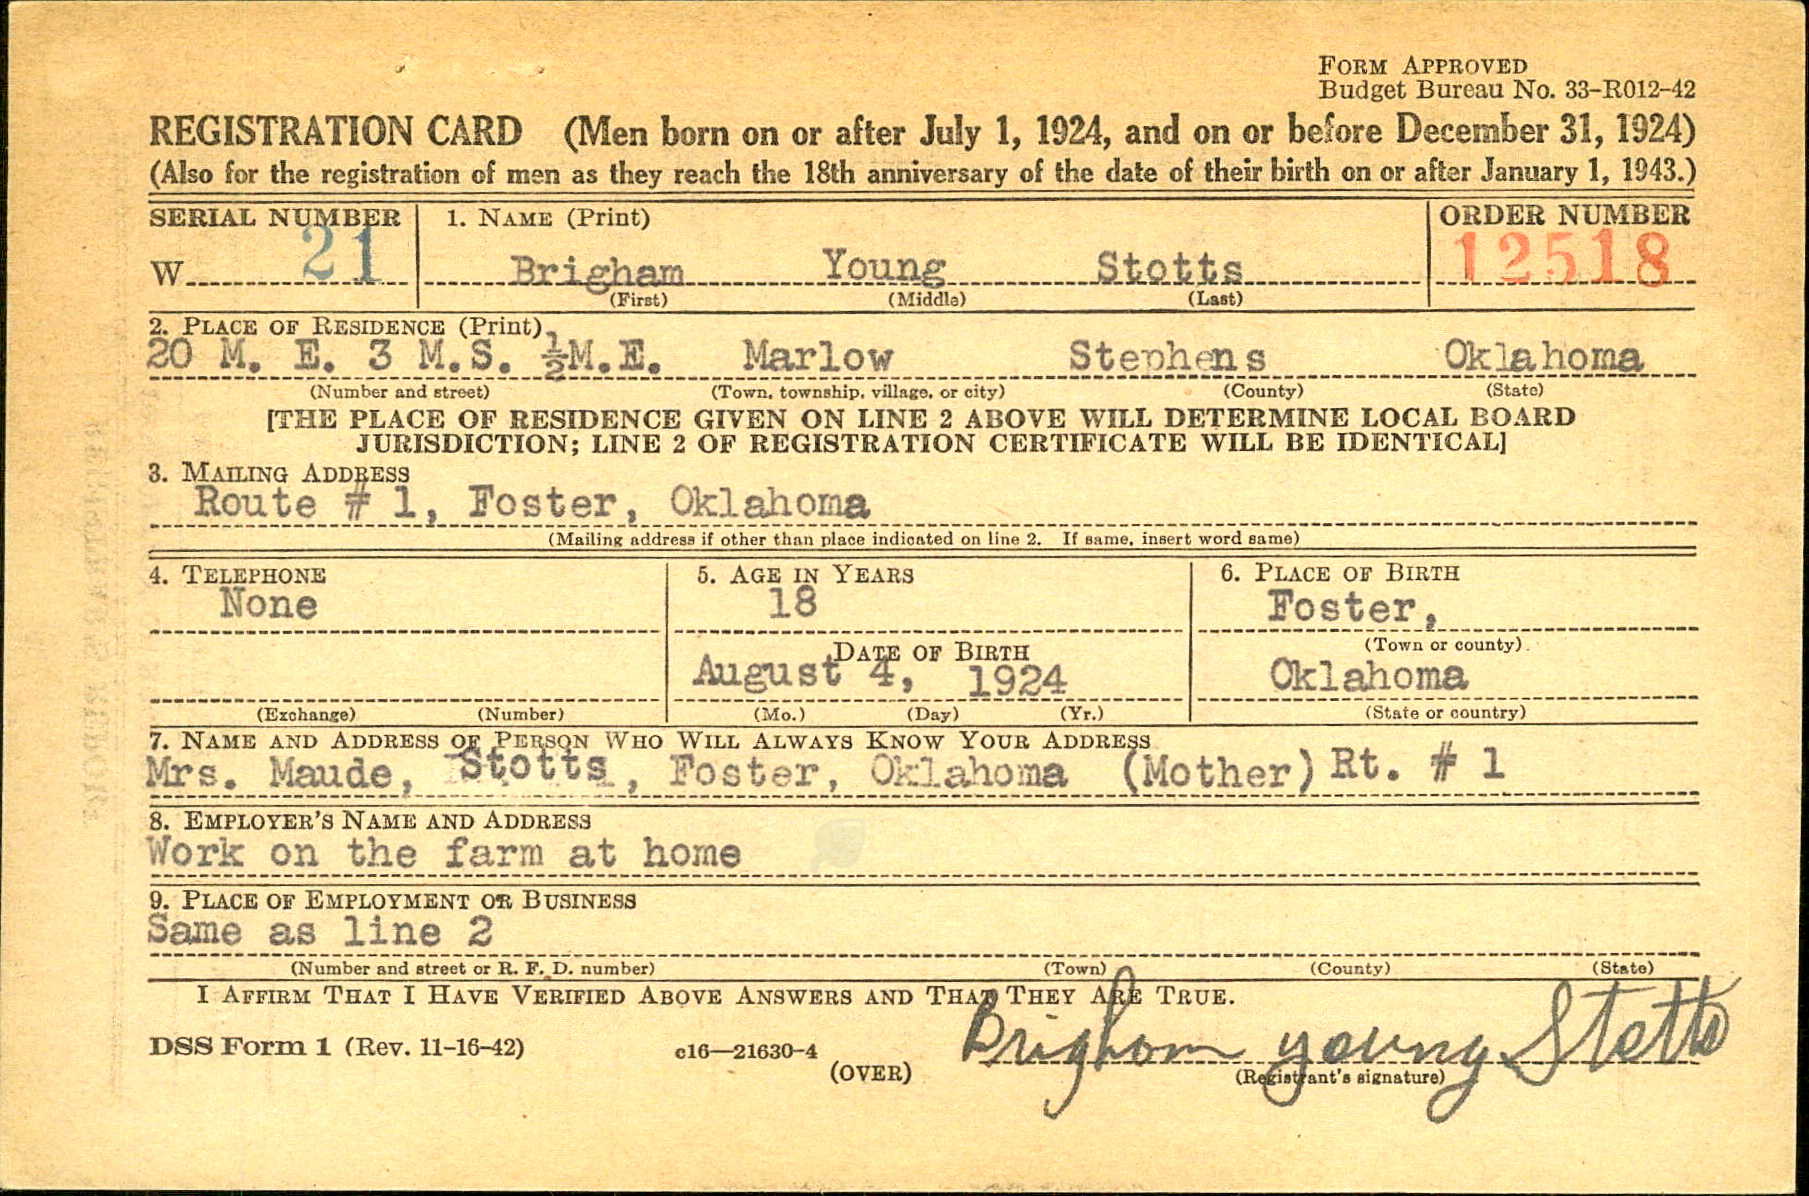 FORM APPROVED
Budget Bureau No. 33-R012-42
REGISTRATION CARD (Men born on or after July 1, 1924, and on or before December 31, 1924)
(Also for the registration of men as they reach the 18th anniversary of the date of their birth on or after January 1, 1943.)
SERIAL NUMBER 1. NAME (Print) ORDER NUMBER
W 21 Brigham Young Stotts 12518
(First) (Middle) (Last)
2. PLACE OF RESIDENCE (Print)
20 M. E. 3 M.S. ½M.E. Marlow Stephens Oklahoma
(Number and street) (Town, township, village, or city) (County) (State)
[THE PLACE OF RESIDENCE GIVEN ON LINE 2 ABOVE WILL DETERMINE LOCAL BOARD
JURISDICTION; LINE 2 OF REGISTRATION CERTIFICATE WILL BE IDENTICAL]
3. MAILING ADDRESS
Route # 1, Foster, Oklahoma
(Mailing address if other than place indicated on line 2. If same, insert word same)
4. TELEPHONE 5. AGE IN YEARS 6. PLACE OF BIRTH
None 18 Foster,
(Town or county)
DATE OF BIRTH
August 4, 1924 Oklahoma
(Exchange) (Number) (Mo.) (Day) (Yr.) (State or country)
7. NAME AND ADDRESS OF PERSON WHO WILL ALWAYS KNOW YOUR ADDRESS
Mrs. Maude, Stotts, Foster, Oklahoma (Mother) Rt. # 1
8. EMPLOYER'S NAME AND ADDRESS
Work on the farm at home
9. PLACE OF EMPLOYMENT OR BUSINESS
Same as line 2
(Number and street or R. F. D. number) (Town) (County) (State)
I AFFIRM THAT I HAVE VERIFIED ABOVE ANSWERS AND THAT THEY ARE TRUE.
Brigham young Stotts
DSS Form 1 (Rev. 11-16-42) c16—21630-4
(OVER) (Registrant's signature)